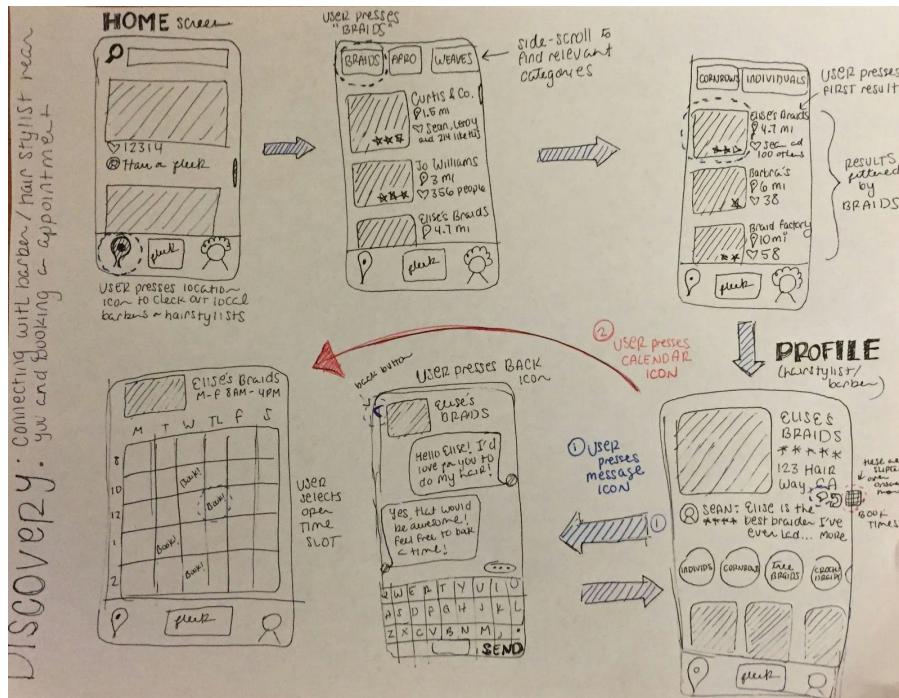 DISCOVERY: Connecting with barber/hair stylist near
you and booking a appointment
HOME screen
♡12314
Hair on fleek
fleek
USER PRESSES LOCATION
ICON to CHECK OUT LOCAL
barbers + hairstylists
USER PRESSES
"BRAIDS"
BRAIDS
AFRO
WEAVES
side-scroll to
find relevant
categories
Curtis & Co.
1.5 mi
♡ Sean, Leroy
and 214 like this
Jo Williams
3 mi
♡ 356 people
Elise's Braids
4.7 mi
fleek
CORNROWS
INDIVIDUALS
USER PRESSES
FIRST RESULT
Elise's Braids
4.7 mi
♡ Sean and
100 others
Barbra's
6 mi
♡ 38
Braid Factory
10 mi
♡ 58
RESULTS
filtered
by
BRAIDS
fleek
PROFILE
(hairstylist/
barber)
ELISE'S
BRAIDS
★★★★★
123 HAIR
WAY, CA
BOOK
TIMES
SEAN: ELISE IS the
★★★★ best braider I've
ever had... MORE
INDIVIDS
CORNROWS
Tree
BRAIDS
CROCHET
BRAIDS
fleek
① USER
PRESSES
message
ICON
①
② USER PRESSES
CALENDAR
ICON
USER PRESSES BACK
ICON
back button
Elise's
BRAIDS
Hello Elise! I'd
love for you to
do my hair!
Yes, that would
be awesome!
Feel free to book
a time!
Q W E R T Y U I O
A S D F G H J K L
Z X C V B N M , .
SEND
ELISE'S BRAIDS
M-F 8AM-4PM
M T W TH F S
8
10
12
1
2
Book!
Book!
Book!
Book!
USER
SELECTS
OPEN
TIME
SLOT
fleek